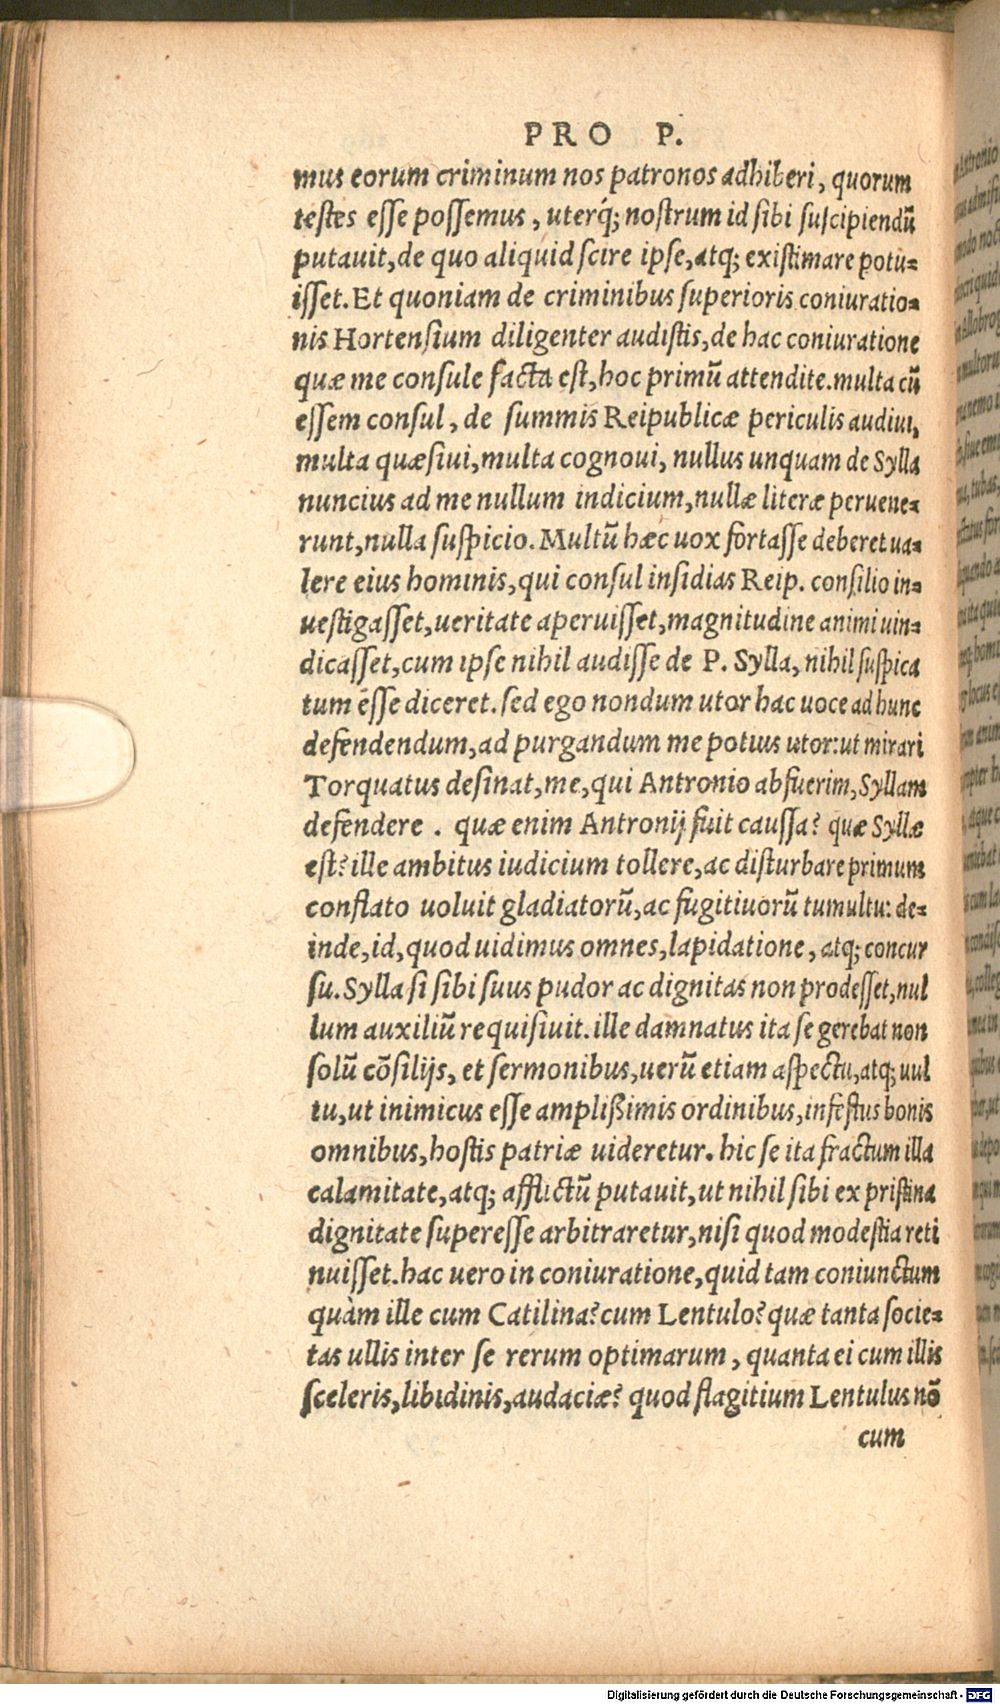 PRO P.
mus eorum criminum nos patronos adhiberi, quorum
testes esse possemus, uterq́; nostrum id sibi suscipiendū
putauit, de quo aliquid scire ipse, atq; existimare potu-
isset. Et quoniam de criminibus superioris coniuratio-
nis Hortensium diligenter audistis, de hac coniuratione
quæ me consule facta est, hoc primū attendite. multa cū
essem consul, de summis Reipublicæ periculis audiui,
multa quæsiui, multa cognoui, nullus unquam de Sylla
nuncius ad me nullum indicium, nullæ literæ peruene-
runt, nulla suspicio. Multū hæc uox fortasse deberet ua-
lere eius hominis, qui consul insidias Reip. consilio in-
uestigasset, ueritate aperuisset, magnitudine animi uin-
dicasset, cum ipse nihil audisse de P. Sylla, nihil suspica
tum esse diceret. sed ego nondum utor hac uoce ad hunc
defendendum, ad purgandum me potius utor: ut mirari
Torquatus desinat, me, qui Antronio abfuerim, Syllam
defendere. quæ enim Antronij fuit caussa? quæ Syllæ
est? ille ambitus iudicium tollere, ac disturbare primum
conflato uoluit gladiatorū, ac fugitiuorū tumultu: de-
inde, id, quod uidimus omnes, lapidatione, atq; concur
su. Sylla si sibi suus pudor ac dignitas non prodesset, nul
lum auxiliū requisiuit. ille damnatus ita se gerebat non
solū cōsilijs, et sermonibus, uerū etiam aspectu, atq; uul
tu, ut inimicus esse amplißimis ordinibus, infestus bonis
omnibus, hostis patriæ uideretur. hic se ita fractum illa
calamitate, atq; afflictū putauit, ut nihil sibi ex pristina
dignitate superesse arbitraretur, nisi quod modestia reti
nuisset. hac uero in coniuratione, quid tam coniunctum
quàm ille cum Catilina? cum Lentulo? quæ tanta socie-
tas ullis inter se rerum optimarum, quanta ei cum illis
sceleris, libidinis, audaciæ? quod flagitium Lentulus nō
cum
Digitalisierung gefördert durch die Deutsche Forschungsgemeinschaft - DFG